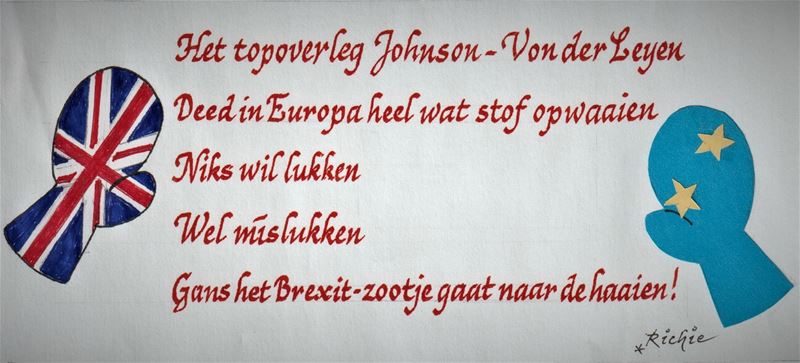 Het topoverleg Johnson - Von der Leyen
Deed in Europa heel wat stof opwaaien
Niks wil lukken
Wel mislukken
Gans het Brexit-zootje gaat naar de haaien!
*Richie